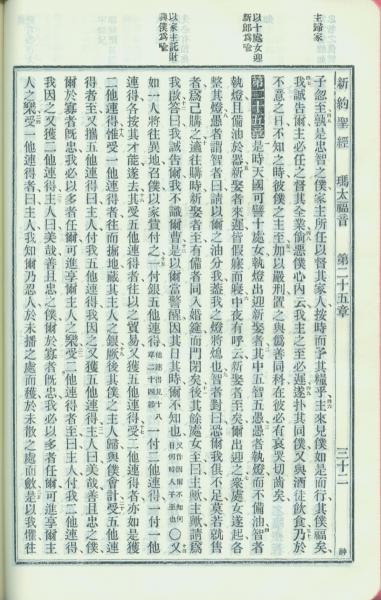 新約聖經 瑪太福音 第二十五章 三十二
主歸家
子忽至孰是忠智之僕家主所任以督其家人按時而予其糧乎主來見僕如是而行其僕福矣
我誠告爾主必任之督其全業倘惡僕心內云我主之至必遲遂扑其同僕又與酒徒飲食乃於
不意之日不知之時彼僕之主至加以嚴刑置之與僞善同科在彼必有哀哭切齒矣
以十處女迎
新郎爲喩
第二十五章 是時天國可譬十處女執燈出迎新娶者其中五智五愚愚者執燈而不備油智者
執燈且備油於器新娶者來遲皆假寐而寢中夜有呼云新娶者至矣爾出迎之衆處女遂起各
整其燈愚者謂智者曰請以爾之油分我蓋我之燈將熄也智者對曰恐爾我俱不足莫若就售
者爲己購之適往購時新娶者至有備者同入婚筵而門閉矣後其餘處女至曰主歟主歟請爲
我啟答曰我誠告爾我不識爾曹是以爾當警醒因其日其時爾不知也又作因爾不知何日何時人子至也〇又
以家主託財
與僕爲喩
如一人將往異地召僕以家貲付之一付銀五他連得他連得見十八章二十四節一付二他連得一付一他
連得各按其才能遂去其受五他連得者往以之貿易又獲五他連得受二他連得者亦如是獲
二他連得惟受一他連得者往而掘地藏其主人之銀厥後其僕之主人歸與僕會計受五他連
得者至又攜五他連得曰主人付我五他連得我因之又獲五他連得主人曰美哉善且忠之僕
爾於寡者旣忠我必以多者任爾可進享爾主人之樂受二他連得者至曰主人付我二他連得
我因之又獲二他連得主人曰美哉善且忠之僕爾於寡者旣忠我必以多者任爾可進享爾主
人之樂受一他連得者至曰主人我知爾乃忍人於未播之處而穫於未散之處而斂是以我懼往